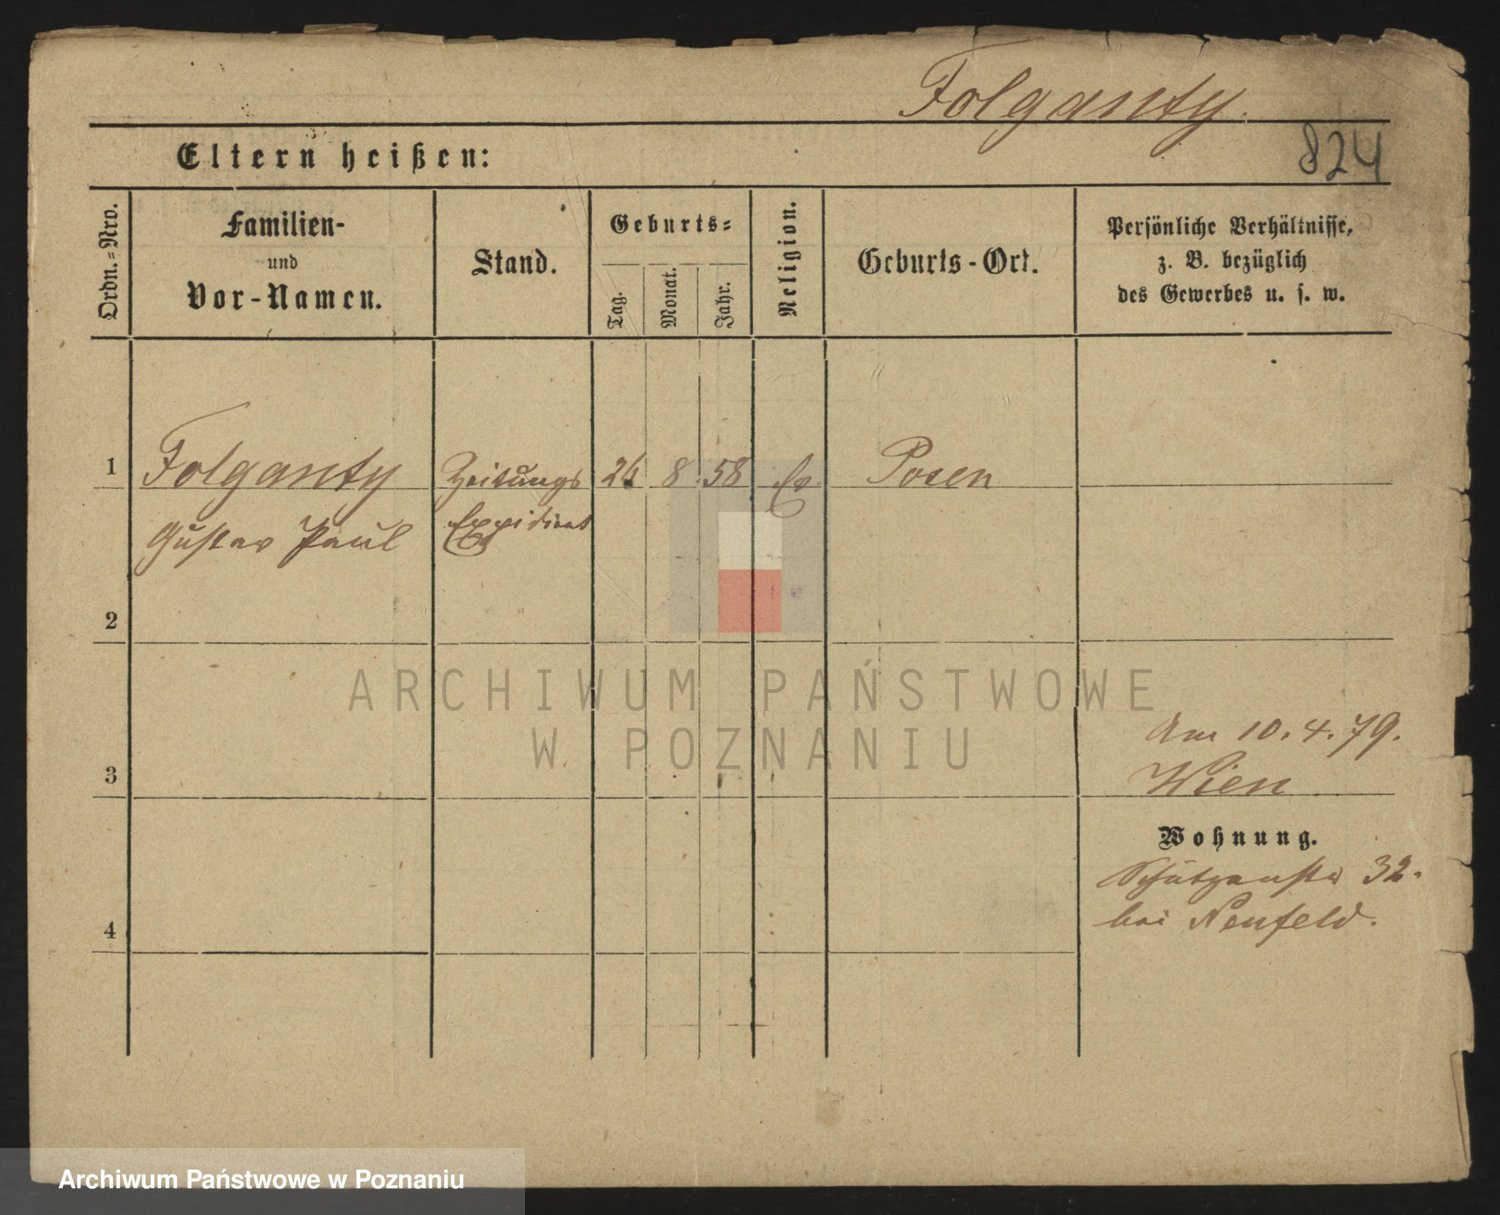 Folganty.
824
Eltern heißen:
Ordn.=Nro.
Familien-
und
Vor-Namen.
Stand.
Geburts=
Tag.
Monat.
Jahr.
Religion.
Geburts-Ort.
Persönliche Verhältnisse,
z. B. bezüglich
des Gewerbes u. s. w.
1
Folganty
Zeitungs
26
8
58
Ev.
Posen
Gustav Paul
Expedient
2
ARCHIWUM PAŃSTWOWE
W POZNANIU
Am 10.4.79.
3
Wien
Wohnung.
Schützenstr 32.
4
bei Neufeld.
Archiwum Państwowe w Poznaniu